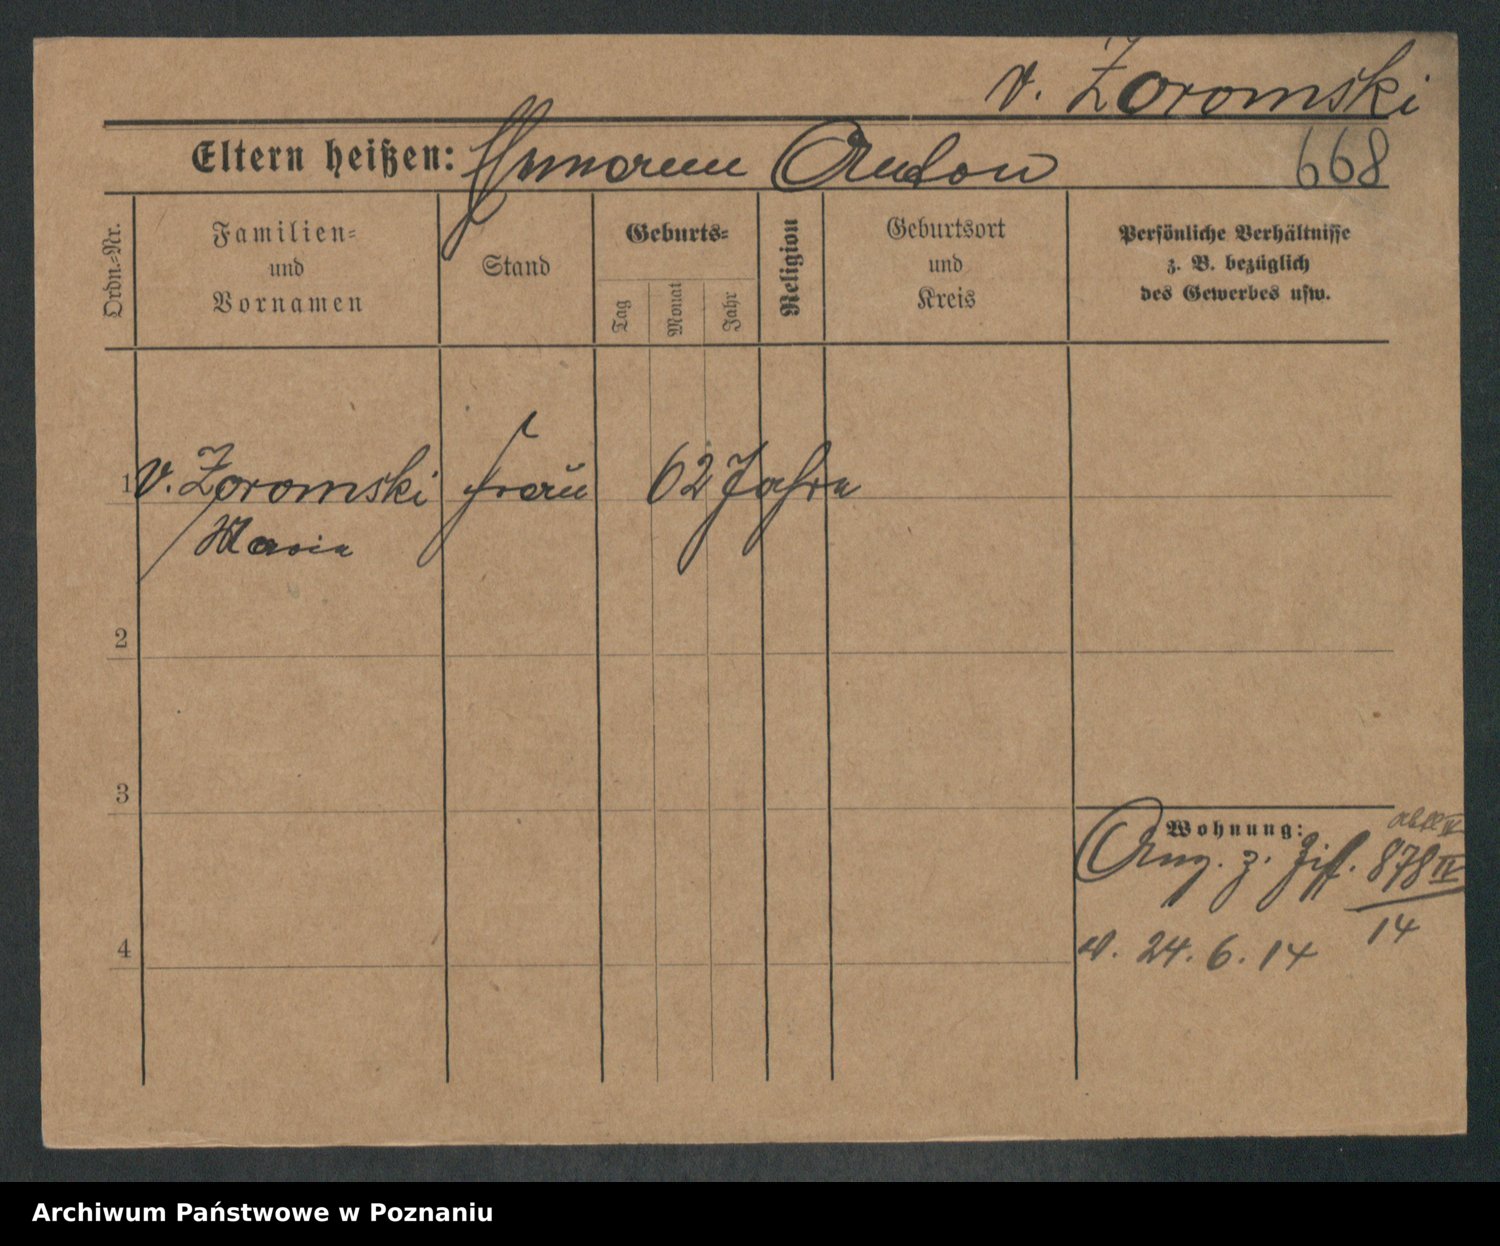 v. Zoromski
Eltern heißen: Anton
668
Ordn.-Nr.
Familien-
und
Vornamen
Stand
Geburts-
Tag
Monat
Jahr
Religion
Geburtsort
und
Kreis
Persönliche Verhältnisse
z. B. bezüglich
des Gewerbes usw.
1 v. Zoromski Frau 62 Jahre
Maria
2
3
4
Wohnung:
Ang. z. Ziff. 878 II
14
v. 24. 6. 14
Archiwum Państwowe w Poznaniu